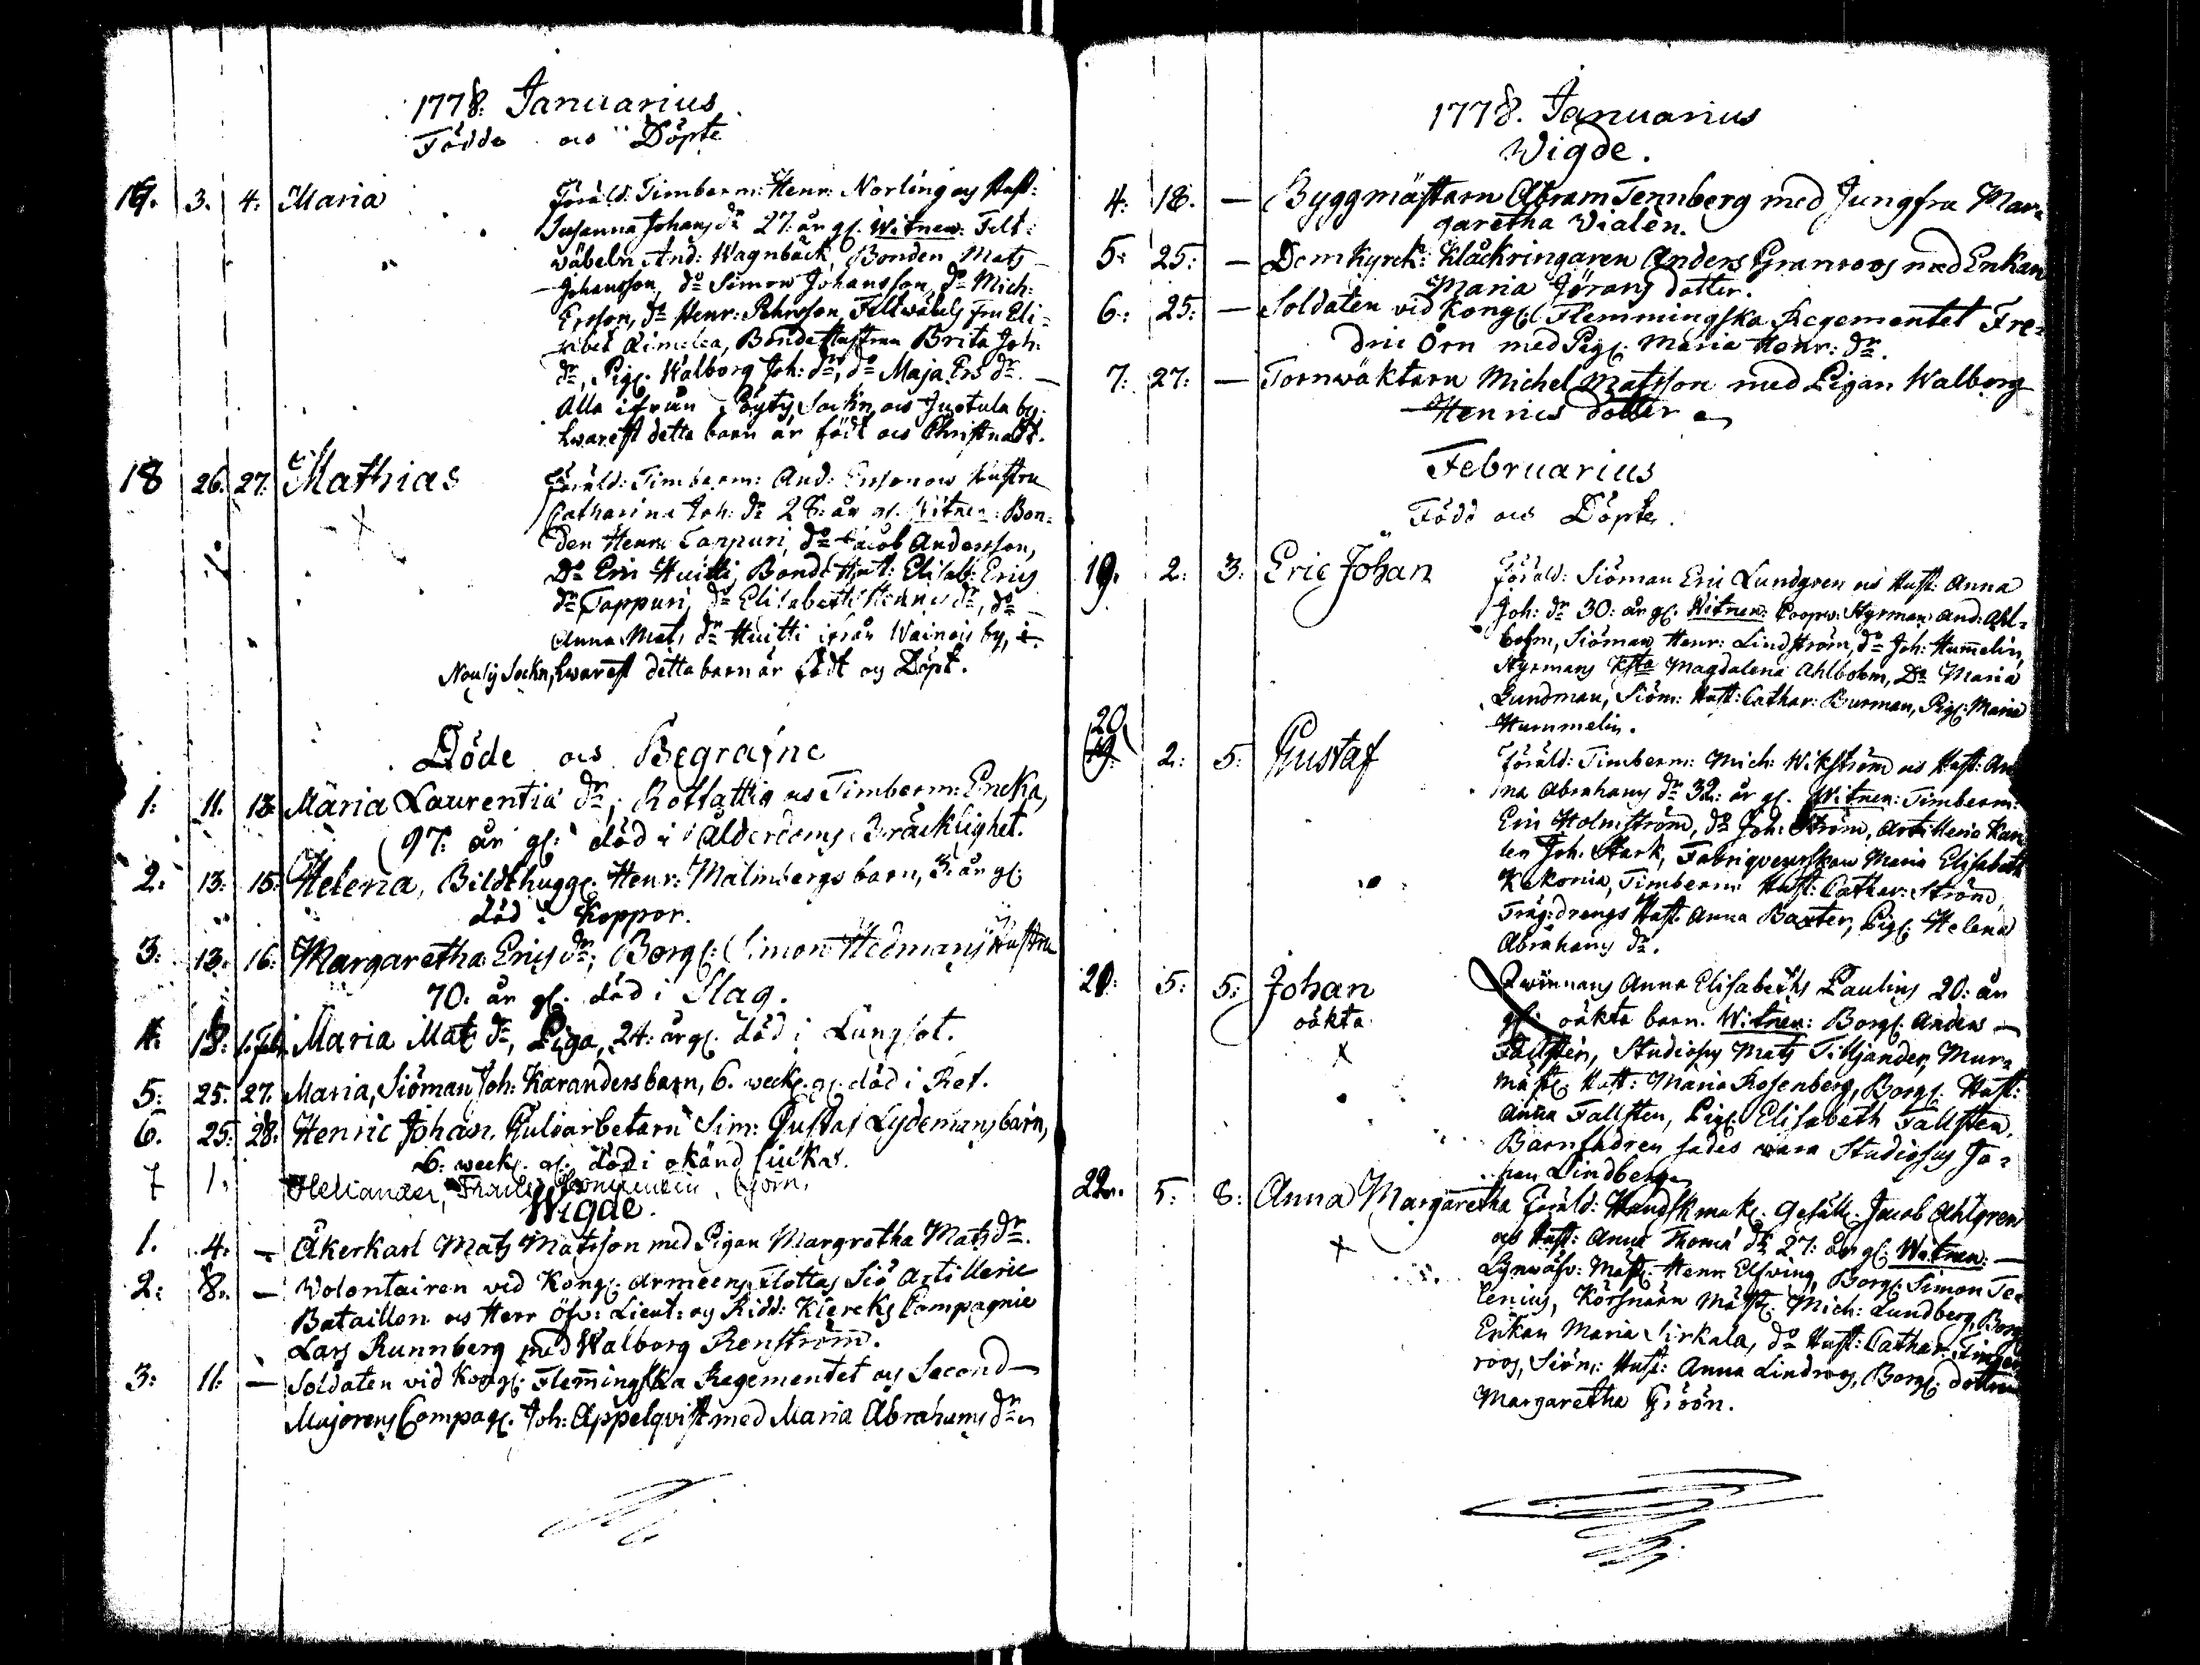 1778. Januarius
Födde och Döpte
3. 4. Maria Föräld: Timberm: Henr: Norling och Hust:
Susanna Johans dr 27. år gl. Witnen: Felt-
wäbeln And: Wagnbäck, Bonden Mats
Johansson, do Simon Johansson, do Mich:
Ersson, do Henr: Fältwäbels fru Eli-
Bonde Hustrun Brita Joh:
dr, Pig. Walborg Joh: dr, do Maja Ers dr.
Alla ifrån Pöytis Sockn och by.
hwarest detta barn är födt och Christnadt.
18 26. 27. Mathias Föräld: Timberm: And: Hustru
Catharina Joh: dr 28. år gl. Witnen: Bon-
den Henr: Tappuri, do Jacob Andersson,
Do Eric Huitti, Bond Hust: Elisab: Erics
dr Tappuri, do Elisabeth Henrics dr, do
Anna Mats dr Huitti ifrån Wainois by, i
Nousis Sockn, hwarest detta barn är födt og Döpt.
Döde och Begrafne
1. 11. 13. Maria Laurentia dr, Timberm: Encka,
97. år gl. död i Ålderdoms Bräcklighet.
2. 13. 15. Helena, Bildthugg. Henr: Malmbergs barn, 3. år gl.
död i Koppor.
3. 13. 16. Margaretha Erics dr, Borg: Simon Hedmans Hustru
70. år gl. död i Slag.
4. 18. 1. Feb. Maria Mats dr, Piga, 24. år gl. död i Lungsot.
5. 25. 27. Maria, Siöman Joh: Karanders barn, 6. weck. gl. död i Ref.
6. 25. 28. Henric Johan, Gulsarbetarn Sim: Gustaf Lydemans barn,
6. weck. gl. död i okänd siuka.
7 1.
Wigde.
1. 4. — Åkerkarl Mats Matsson med Pigan Margretha Mats dr.
2. 8. — Volontairen vid Kongl. Armeens Flottas Siö Artillerie
Bataillon och Herr Öfv: Lieut: og Ridd: Klercks Compagnie
Lars Runnberg med Walborg Renström.
3. 11. — Soldaten vid Kongl. Flemingska Regementet och Second
Majorens Compag. Joh: Appelqvist med Maria Abrahams dr
1778. Januarius
Wigde.
4. 18. — Byggmästarn Abram Tennberg med Jungfru Mar-
garetha Vialén.
5. 25. — Domkyrk: Klåckringaren Anders Granroos med Enkan
Maria Jörans dotter.
6. 25. — Soldaten vid Kongl Flemmingska Regementet Fre-
dric Örn med Pig. Maria Henr: dr.
7. 27. — Tornwäktarn Michel Matsson med Pigan Walborg
Henrics dotter
Februarius
Född och Döpte.
19. 2. 3. Eric Johan Föräld: Siöman Eric Lundgren och Hust: Anna
Joh: dr 30. år gl. Witnen: Styrman And: Ahl-
bohm, Siöman Henr: Lindström, do Joh: Hummelin,
Styrmans Hsta Magdalena Ahlbohm, Do Maria
Gundman, Siöm: Hust: Cathar: Burman, Pig: Maria
Hummelin.
20
19. 2. 5. Gustaf Föräld: Timberm: Mich: Wikström och Hust: An
na Abrahams dr 32. år gl. Witnen: Timberm:
Eric Holmström, do Joh: Ström, Artillerie Kar
len Joh. Stark, Maria Elisabeth
Timberm: Hust: Cathar: Ström,
Träg:drengs Hust: Anna Baxter, Pig. Helena
Abrahams dr.
21. 5. 5. Johan Qwinnans Anna Elisabeths Paulins 20. år
oäkta gl. oäkta barn. Witnen: Borg. Anders
Fallsten, Studiosus Mats Tilljander, Mur-
mäst. Hust: Maria Rosenberg, Borg. Hust:
Anna Fallsten, Pig. Elisabeth Fallsten.
Barnfadren sades wara Studiosus Jo-
han Lindberg
22. 5. 8. Anna Margaretha Föräld: Handskmak. Gesäll. Jacob Ahlgren
och Hust: Anna Thoma dr 27. år gl. Witnen:
Mäst. Henr. Elfving, Borg. Simon Te-
lenius, Körsnärn Mäst. Mich: Lundberg, Borg
Enkan Maria Sirkala, do Hust: Cathar:
roos, Siöm: Hust: Anna Lindroos, Borg. dottren
Margaretha Gröön.